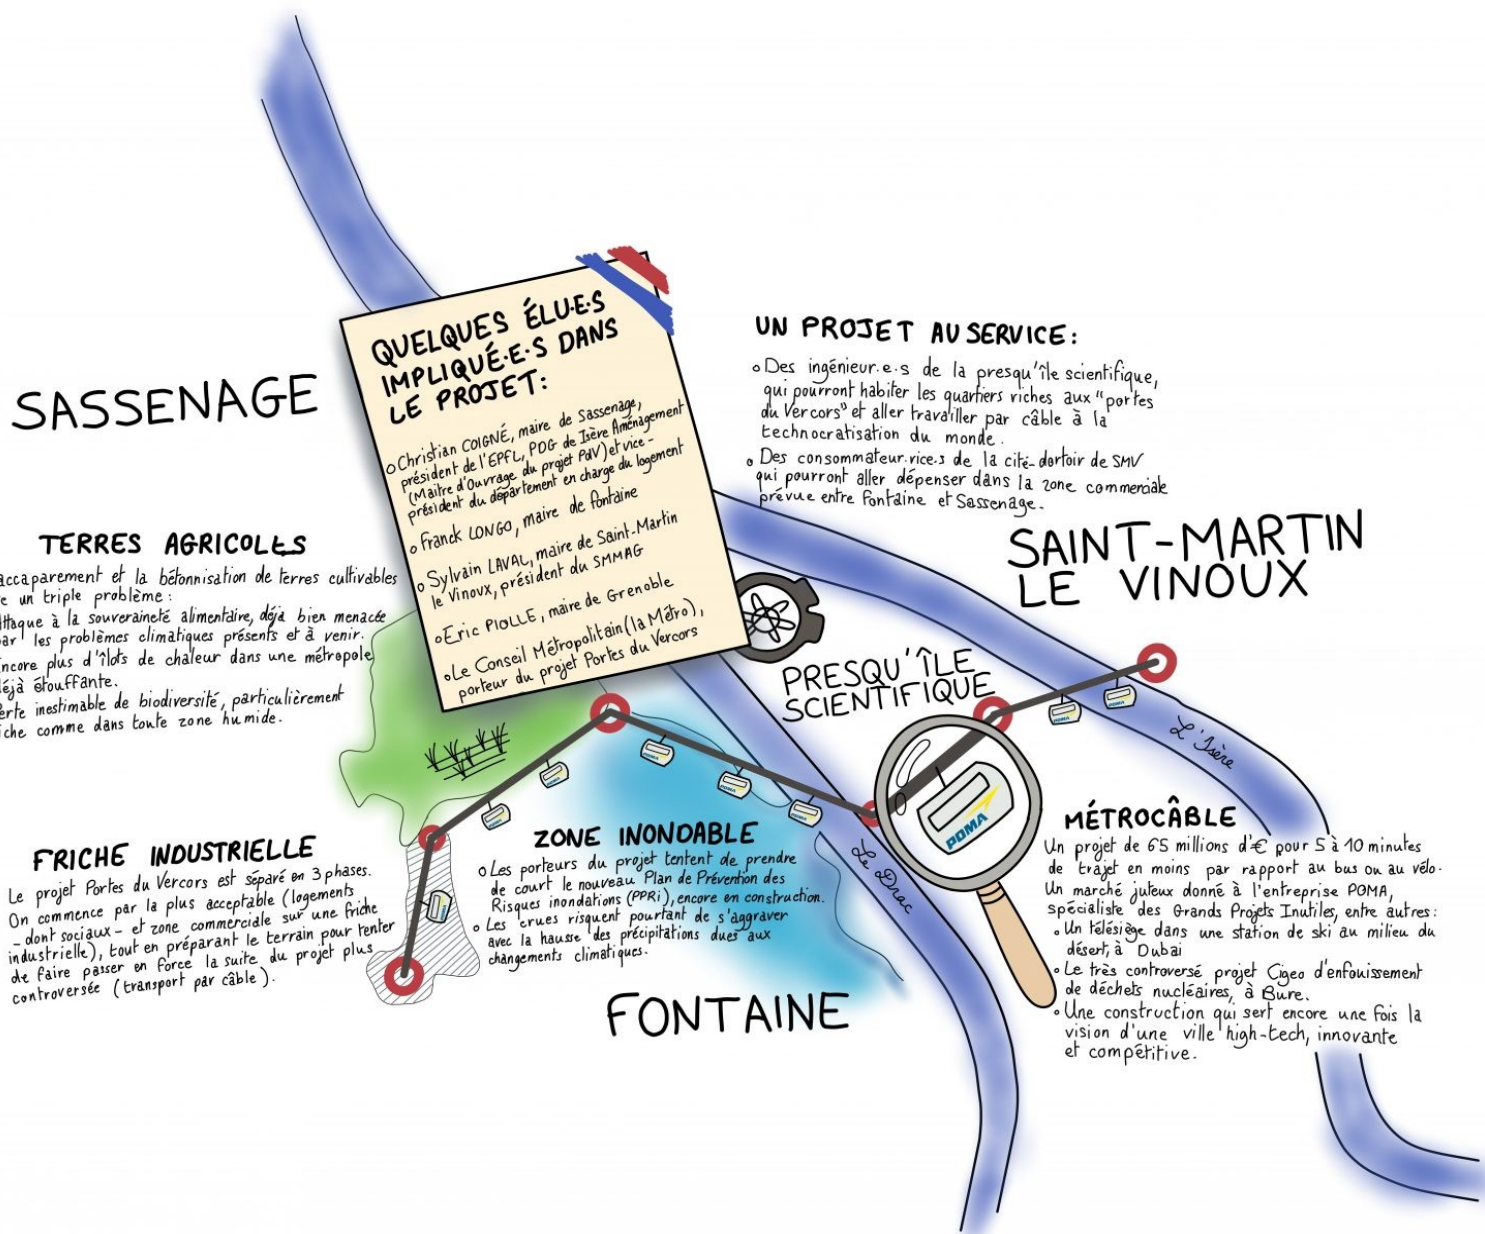 SASSENAGE
QUELQUES ÉLU·E·S
IMPLIQUÉ·E·S DANS
LE PROJET:
Christian COIGNÉ, maire de Sassenage,
président de l'EPFL, PDG de Isère Aménagement
(Maître d'Ouvrage du projet PdV) et vice-
président du département en charge du logement
Franck LONGO, maire de fontaine
Sylvain LAVAL, maire de Saint-Martin
le Vinoux, président du SMMAG
Eric PIOLLE, maire de Grenoble
Le Conseil Métropolitain (la Métro),
porteur du projet Portes du Vercors
UN PROJET AU SERVICE:
Des ingénieur.e.s de la presqu'île scientifique,
qui pourront habiter les quartiers riches aux "portes
du Vercors" et aller travailler par câble à la
technocratisation du monde.
Des consommateur.rice.s de la cité-dortoir de SMV
qui pourront aller dépenser dans la zone commerciale
prévue entre Fontaine et Sassenage.
SAINT-MARTIN
LE VINOUX
TERRES AGRICOLES
accaparement et la bétonnisation de terres cultivables
un triple problème:
attaque à la souveraineté alimentaire, déjà bien menacée
par les problèmes climatiques présents et à venir.
encore plus d'îlots de chaleur dans une métropole
déjà étouffante.
perte inestimable de biodiversité, particulièrement
riche comme dans toute zone humide.
PRESQU'ÎLE
SCIENTIFIQUE
L'Isère
Le Drac
POMA
POMA
POMA
POMA
POMA
POMA
POMA
POMA
POMA
FRICHE INDUSTRIELLE
Le projet Portes du Vercors est séparé en 3 phases.
On commence par la plus acceptable (logements
- dont sociaux - et zone commerciale sur une friche
industrielle), tout en préparant le terrain pour tenter
de faire passer en force la suite du projet plus
controversée (transport par câble).
ZONE INONDABLE
Les porteurs du projet tentent de prendre
de court le nouveau Plan de Prévention des
Risques inondations (PPRi), encore en construction.
Les crues risquent pourtant de s'aggraver
avec la hausse des précipitations dues aux
changements climatiques.
FONTAINE
MÉTROCÂBLE
Un projet de 65 millions d'€ pour 5 à 10 minutes
de trajet en moins par rapport au bus ou au vélo.
Un marché juteux donné à l'entreprise POMA,
spécialiste des Grands Projets Inutiles, entre autres:
Un télésiège dans une station de ski au milieu du
désert, à Dubai
Le très controversé projet Cigeo d'enfouissement
de déchets nucléaires, à Bure.
Une construction qui sert encore une fois la
vision d'une ville high-tech, innovante
et compétitive.